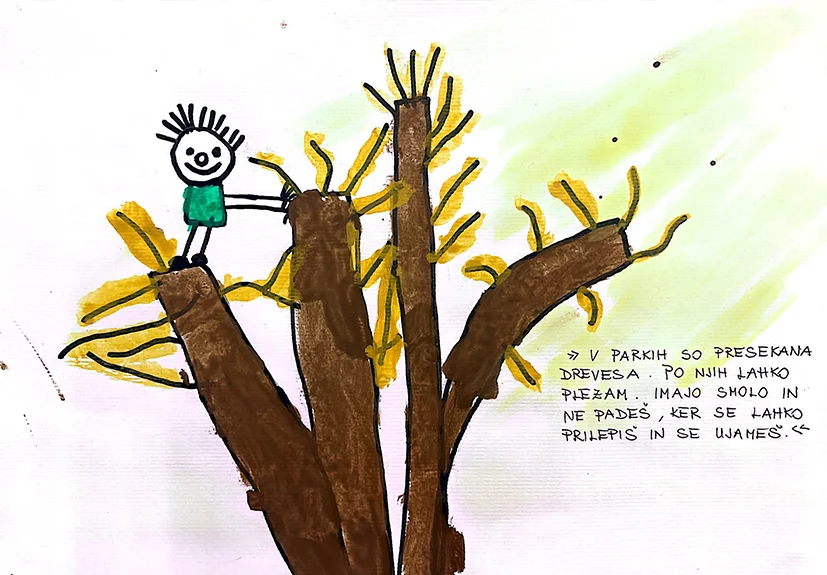 » V PARKIH SO PRESEKANA
DREVESA. PO NJIH LAHKO
PLEZAM. IMAJO SMOLO IN
NE PADEŠ, KER SE LAHKO
PRILEPIŠ IN SE UJAMEŠ.«